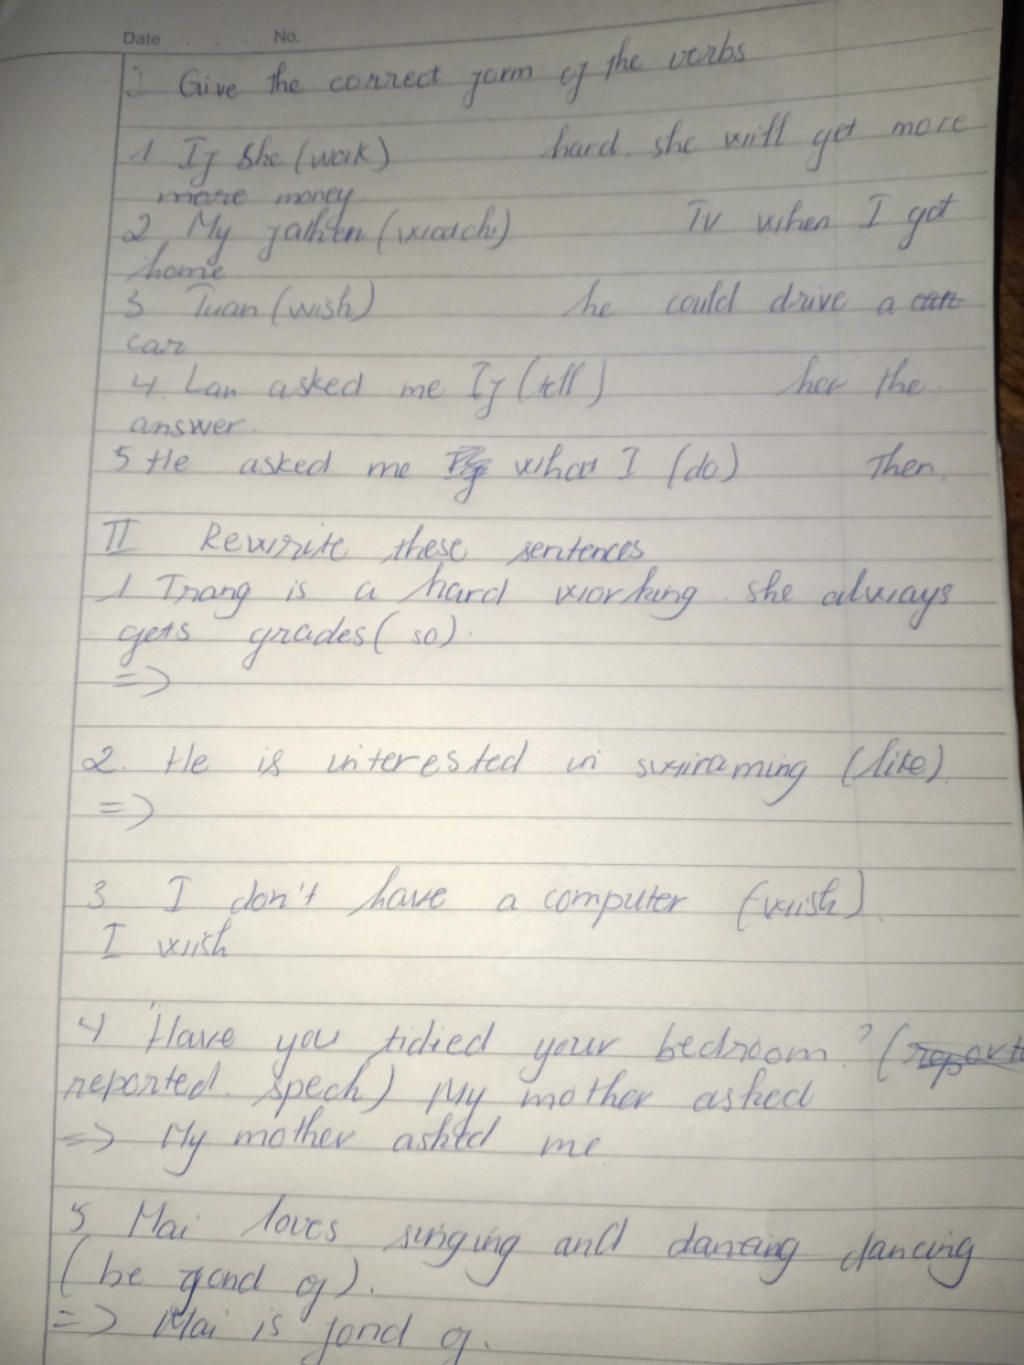 Date No.
I Give the correct form of the verbs
1 If she (work) hard. she will get more
more money
2 My father (watch) TV when I got
home
3 Tuan (wish) he could drive a
car
4. Lan asked me If (tell) her the
answer.
5 He asked me what I (do) Then.
II Rewrite these sentences
1 Trang is a hard working. she always
gets grades (so).
=>
2. He is interested in swimming (like).
=>
3 I don't have a computer (wish).
I wish
4 "Have you tidied your bedroom? (
reported. spech) My mother asked
=> My mother asked me
5 Mai loves singing and dancing
(be fond of).
=> Mai is fond of.